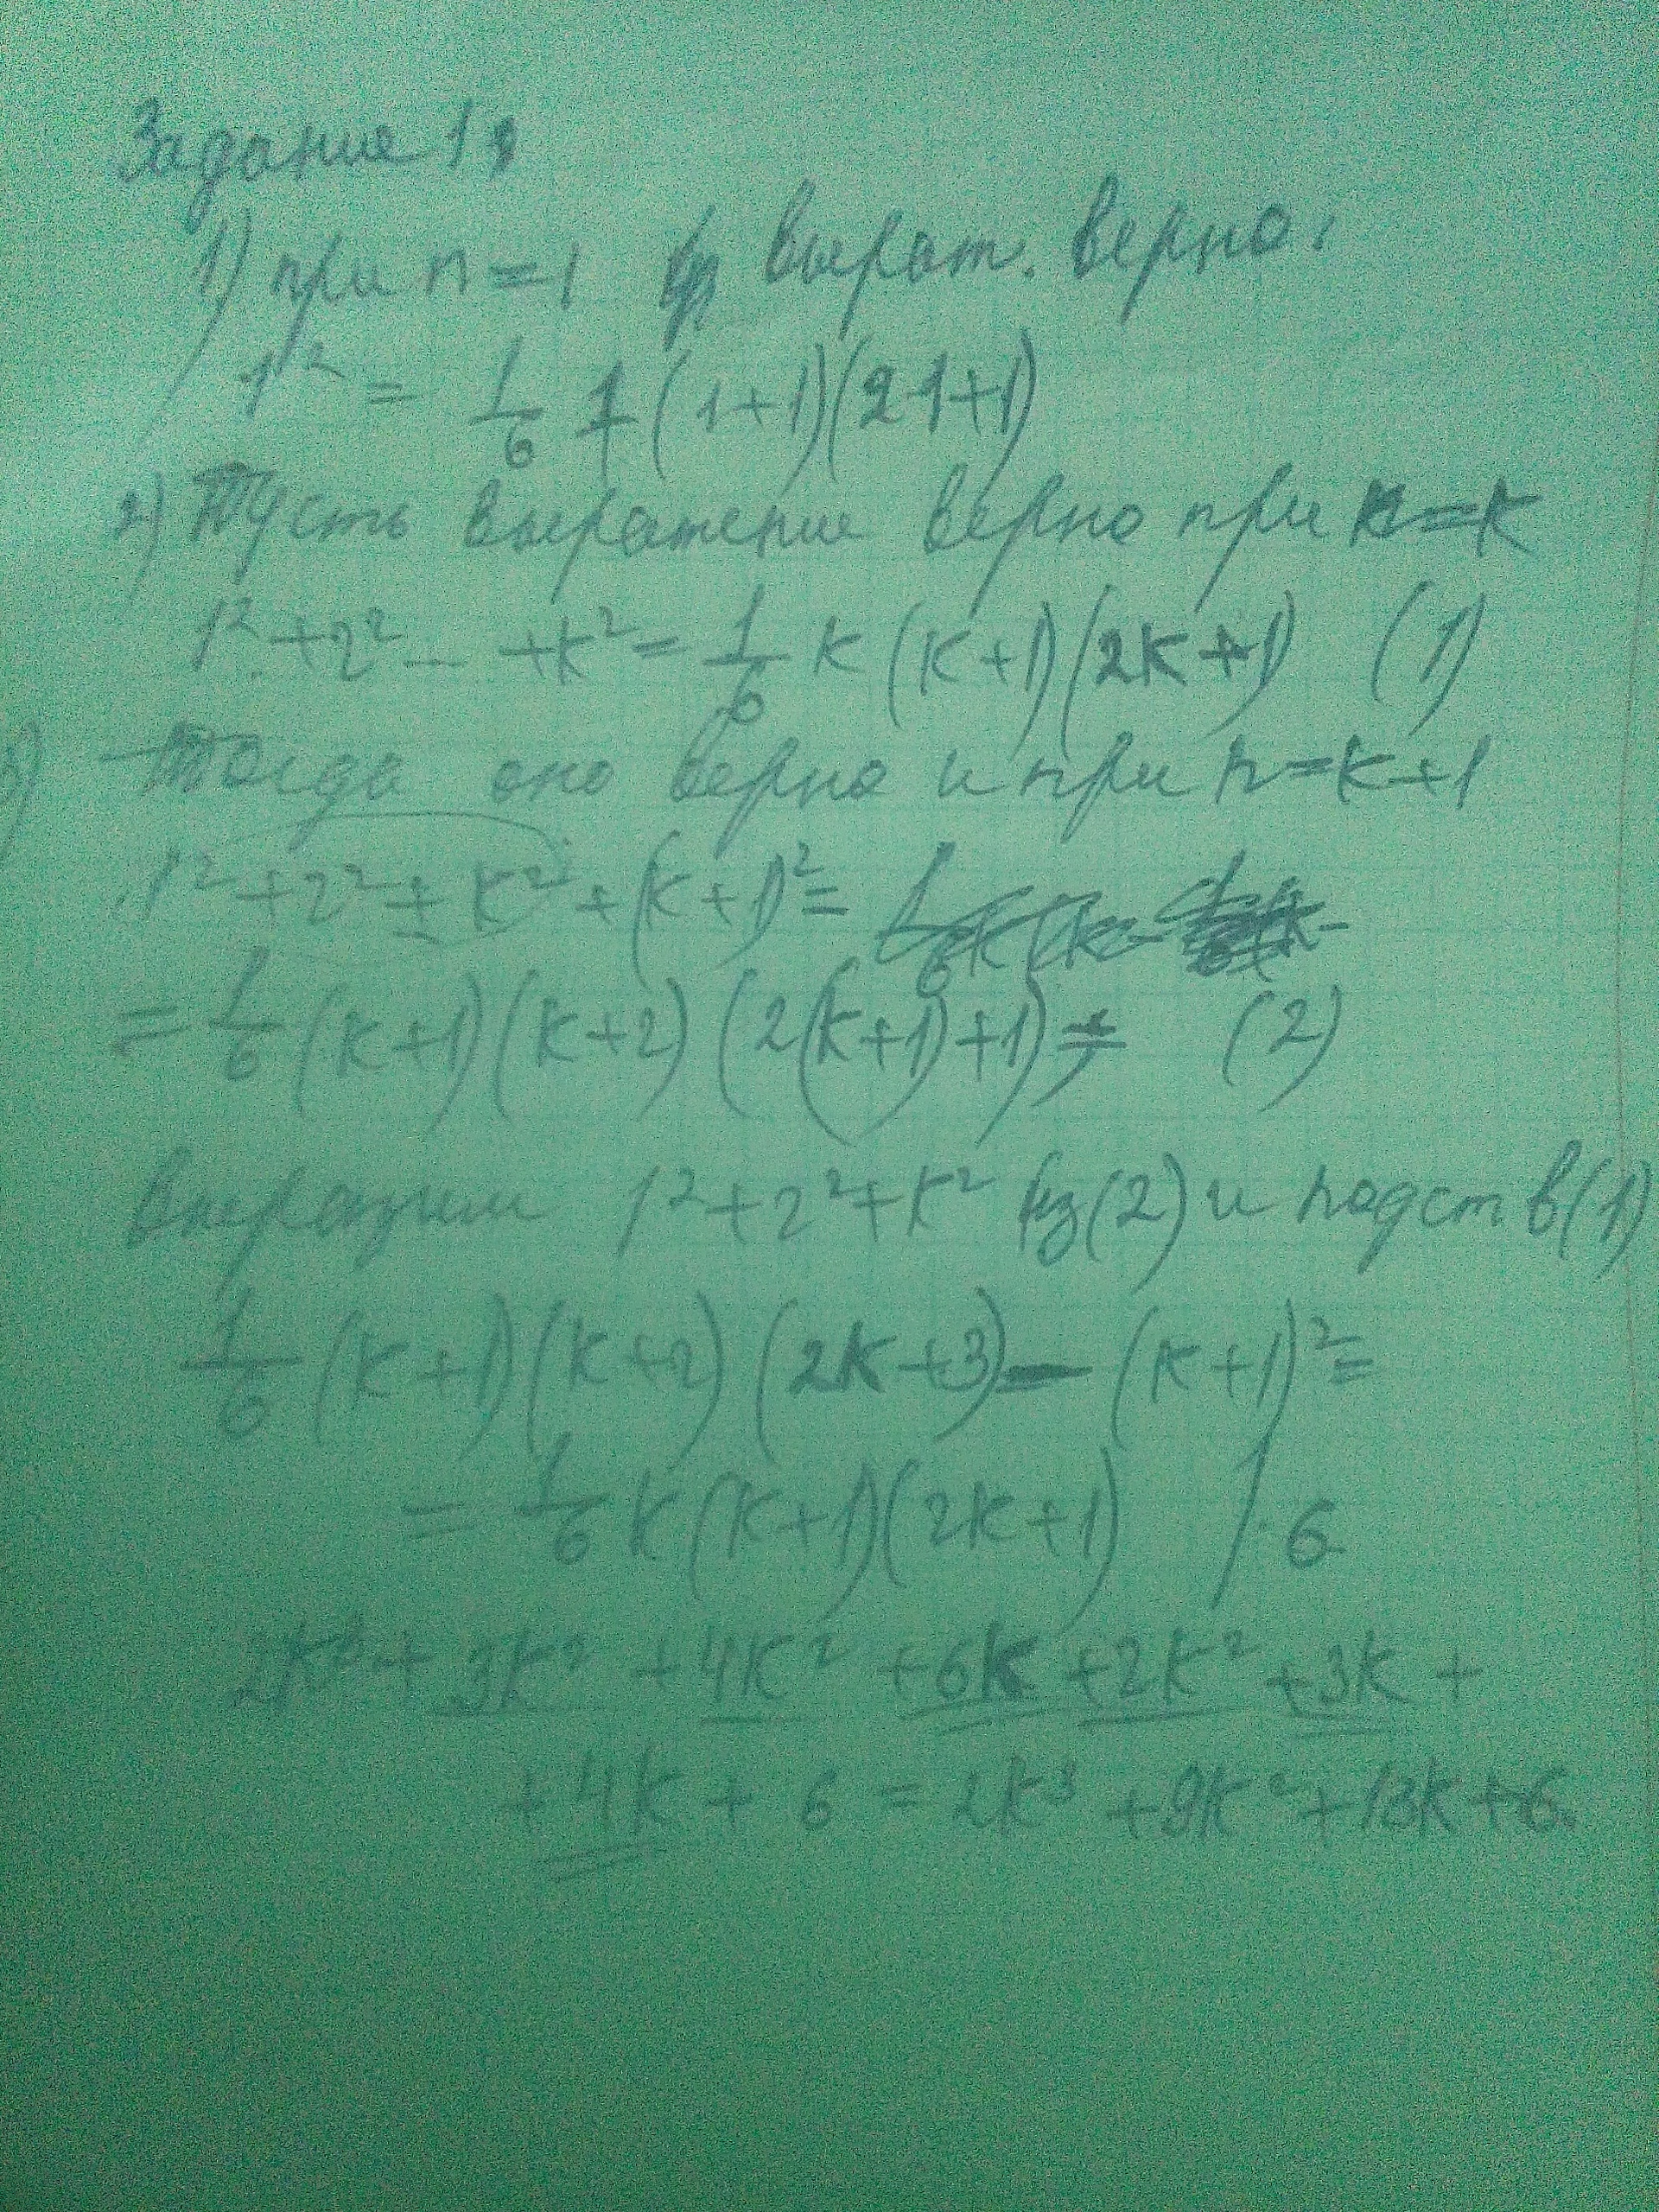 Задание 1.
1) при n=1 выраж. верно:
1² = 1/6 1 (1+1)(2·1+1)
2) Пусть выражение верно при n=k
1²+2²... +k² = 1/6 k (k+1)(2k+1) (1)
3) Тогда оно верно и при n=k+1
1²+2²+k²+(k+1)²=
= 1/6 (k+1)(k+2)(2(k+1)+1) (2)
Выразим 1²+2²+k² из (2) и подст в (1)
1/6 (k+1)(k+2)(2k+3) - (k+1)² =
= 1/6 k (k+1)(2k+1) / · 6
2k³+3k²+4k²+6k+2k²+3k+
+4k+6=2k³+9k²+13k+6.